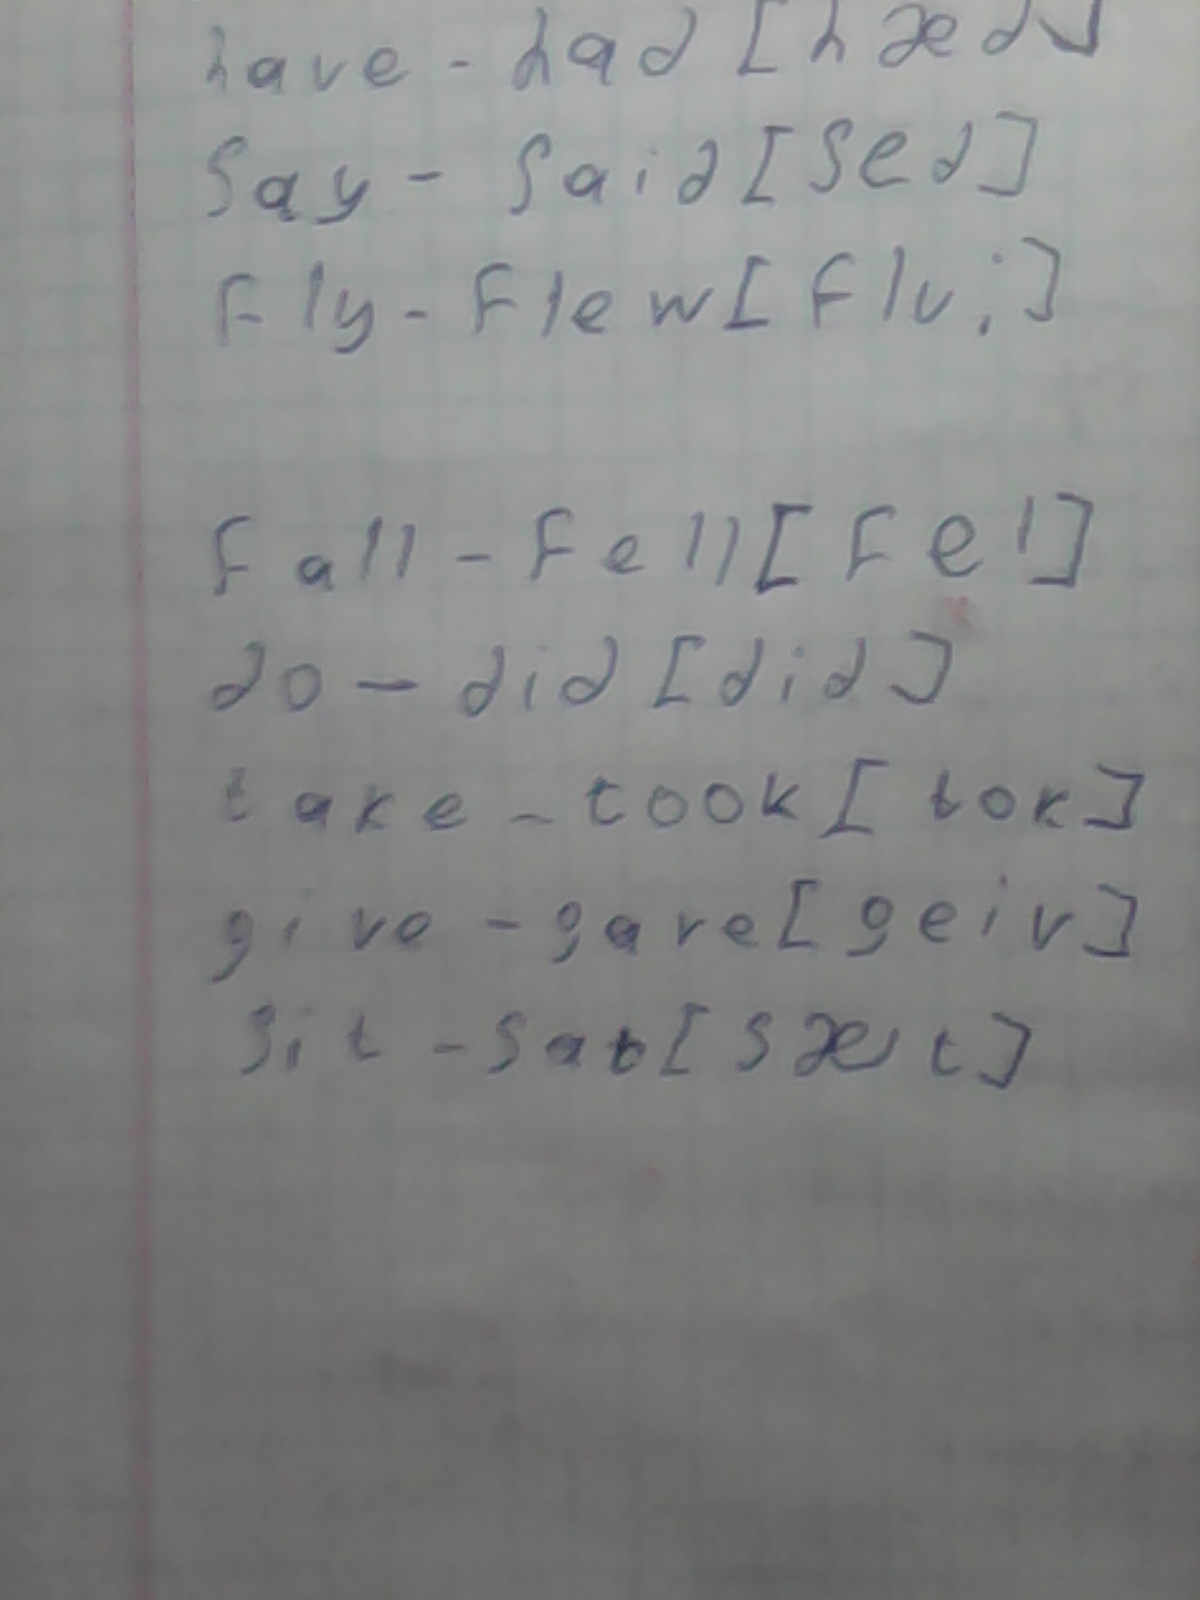 have - had [hæd]
Say - Said [Sed]
Fly - Flew [Flu:]
Fall - Fell [Fel]
do - did [did]
take - took [tok]
give - gave [geiv]
Sit - Sat [sæt]